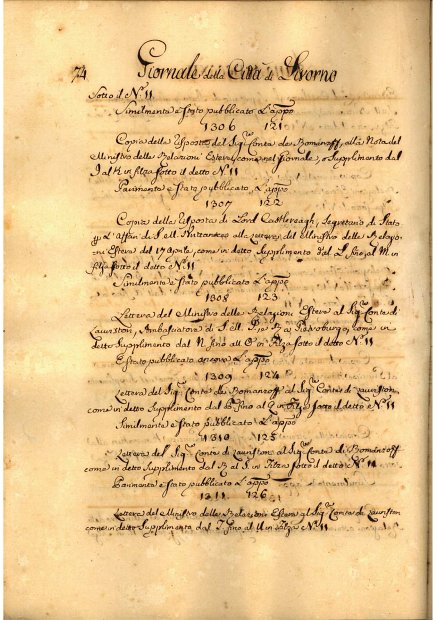 74 Giornale della Città di Livorno
Sotto il N.º 11
Similmente è stato pubblicato L'appo
1306 121
Copia della Risposta del Sig.r Conte de Romanzoff, alla Nota del
Ministro delle Relazioni Estere, come nel Giornale, o Supplimento dal
I al K in filza sotto il detto N.º 11
Parimente è stato pubblicato L'appo
1307 122
Copia della Risposta di Lord Castlereagh, Segretario di Stato
L'affari di S. M. Brittanica alla lettera del Ministro delle Relazio-
ni Estere del 17 Aprile, come in detto Supplimento dal L fino al M in
filza sotto il detto N.º 11
Similmente è stato pubblicato L'appo
1308 123
Lettera del Ministro delle Relazioni Estere al Sig.r Conte di
Lauriston, Ambasciatore di S. M. a Pietroburgo, come in
detto Supplimento dal N fino all O in Filza sotto il detto N.º 11
È stato pubblicato ancora L'appo
1309 124
Lettera del Sig.r Conte de Romanzoff al Sig.r Conte di Lauriston
come in detto Supplimento dal fino al Q in Filza sotto il detto N.º 11
Similmente è stato pubblicato L'appo
1310 125
Lettera del Sig.r Conte di Lauriston al Sig.r Conte di Romanzoff
come in detto Supplimento dal R al S in Filza sotto il detto N.º 11
Parimente è stato pubblicato L'appo
1311 126
Lettera del Ministro delle Relazioni Estere al Sig.r Conte di Lauriston
come in detto Supplimento dal T fino al U in Filza N.º 11